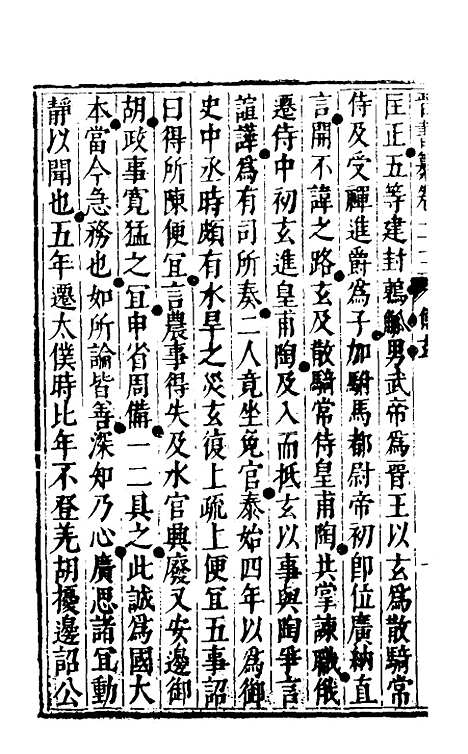 匡正五等建封鶉觚男武帝為晉王以玄為散騎常
侍及受禪進爵為子加駙馬都尉帝初卽位廣納直
言開不諱之路玄及散騎常侍皇甫陶共掌諫職俄
遷侍中初玄進皇甫陶及入而抵玄以事與陶爭言
諠譁為有司所奏二人竟坐免官泰始四年以為御
史中丞時頗有水旱之災玄復上疏上便冝五事詔
曰得所陳便冝言農事得失及水官興廢又安邊御
胡政事寬猛之冝申省周備一二具之此誠為國大
本當今急務也如所論皆善深知乃心廣思諸冝動
靜以聞也五年遷太僕時比年不登羌胡擾邊詔公